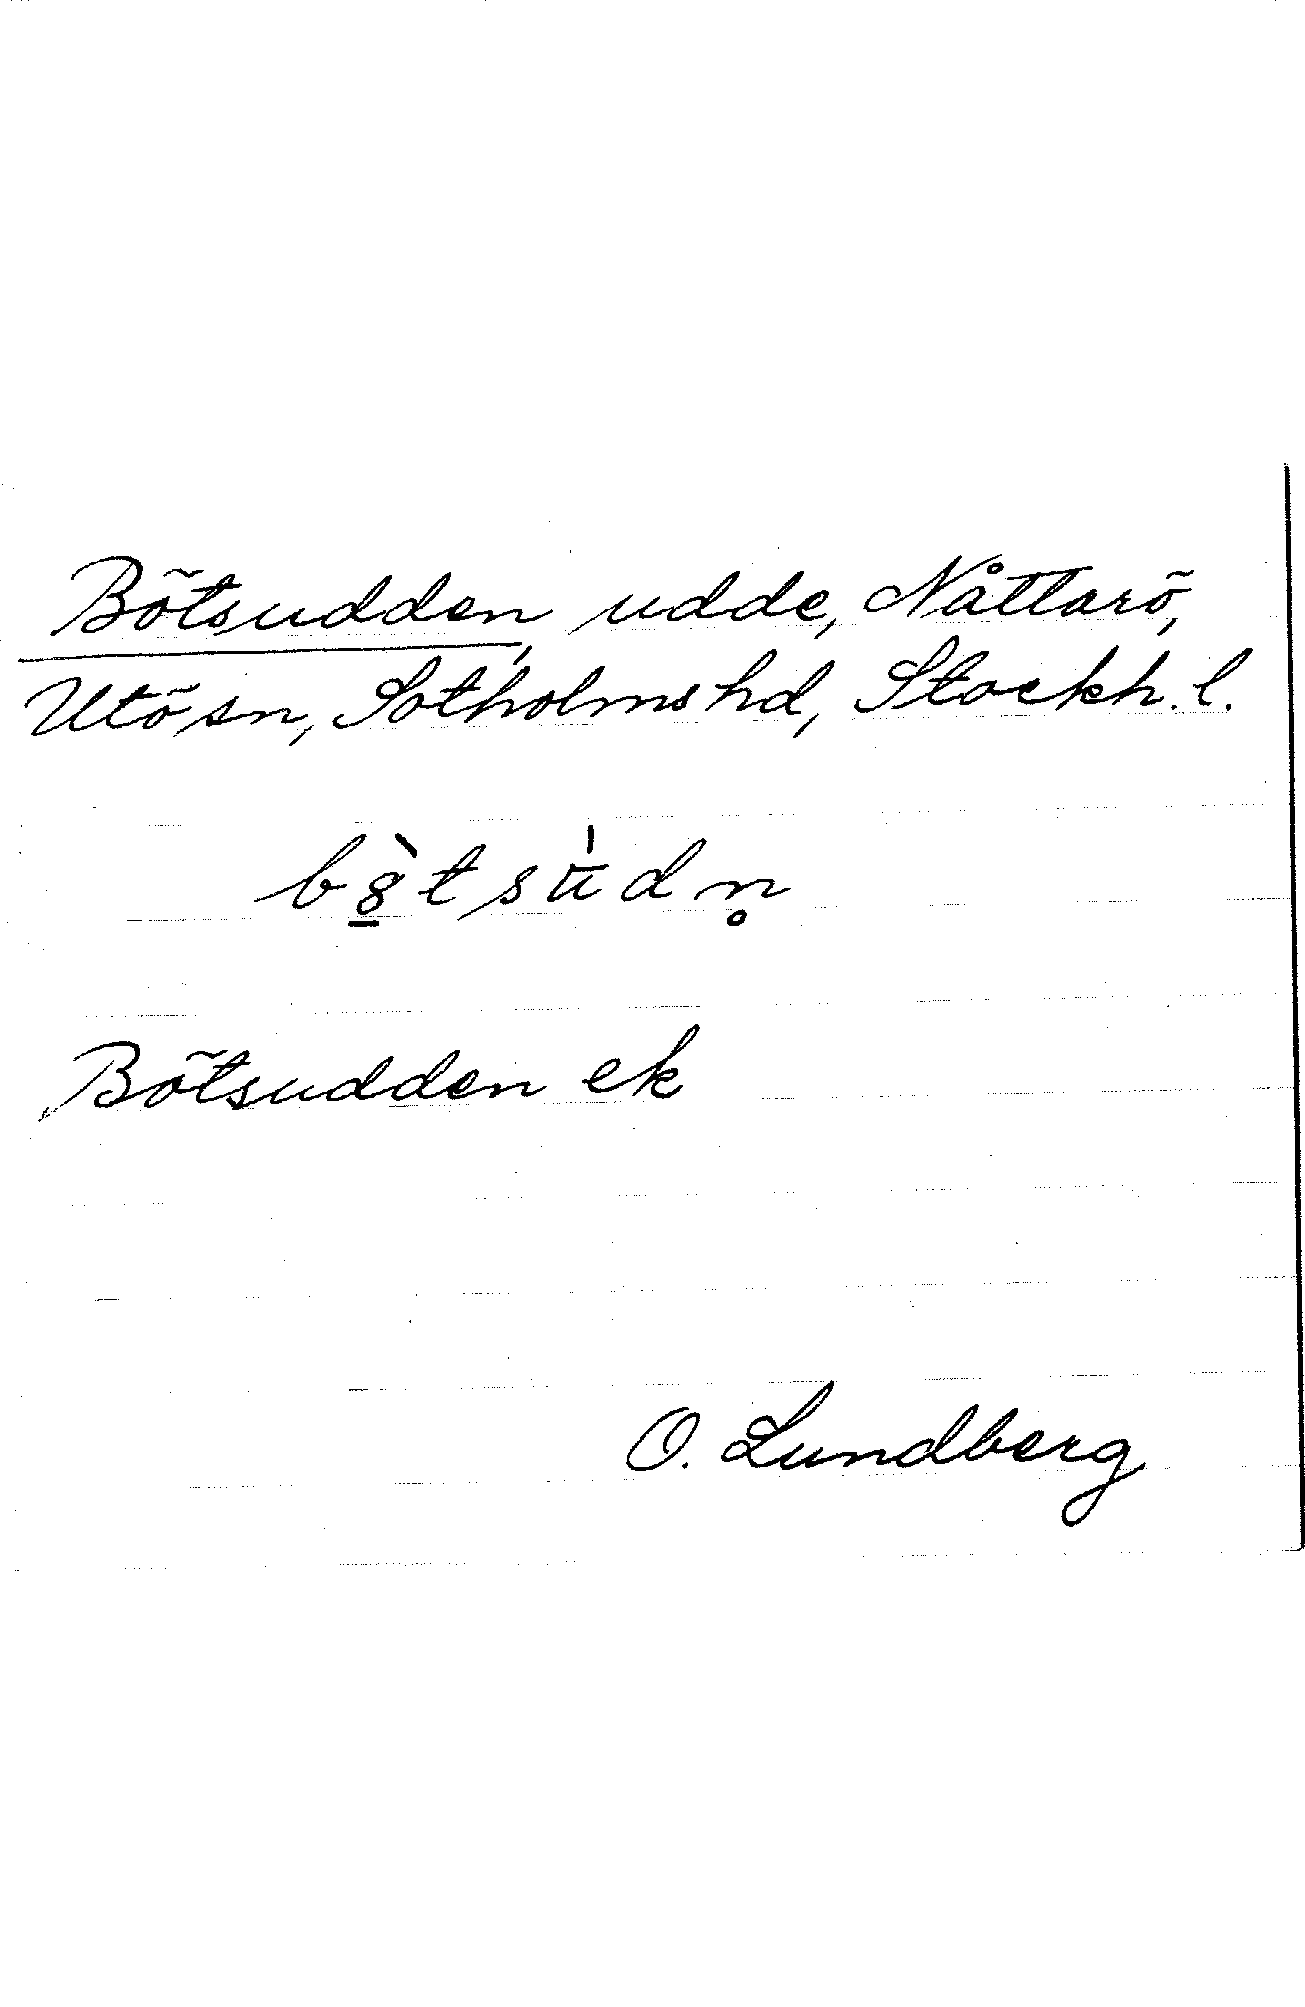 Bötsudden, udde, Nåttarö,
Utö sn, Sotholms hd, Stockh. l.
b8̲̀tsu̍dn̥
Bötsudden ek
O. Lundberg